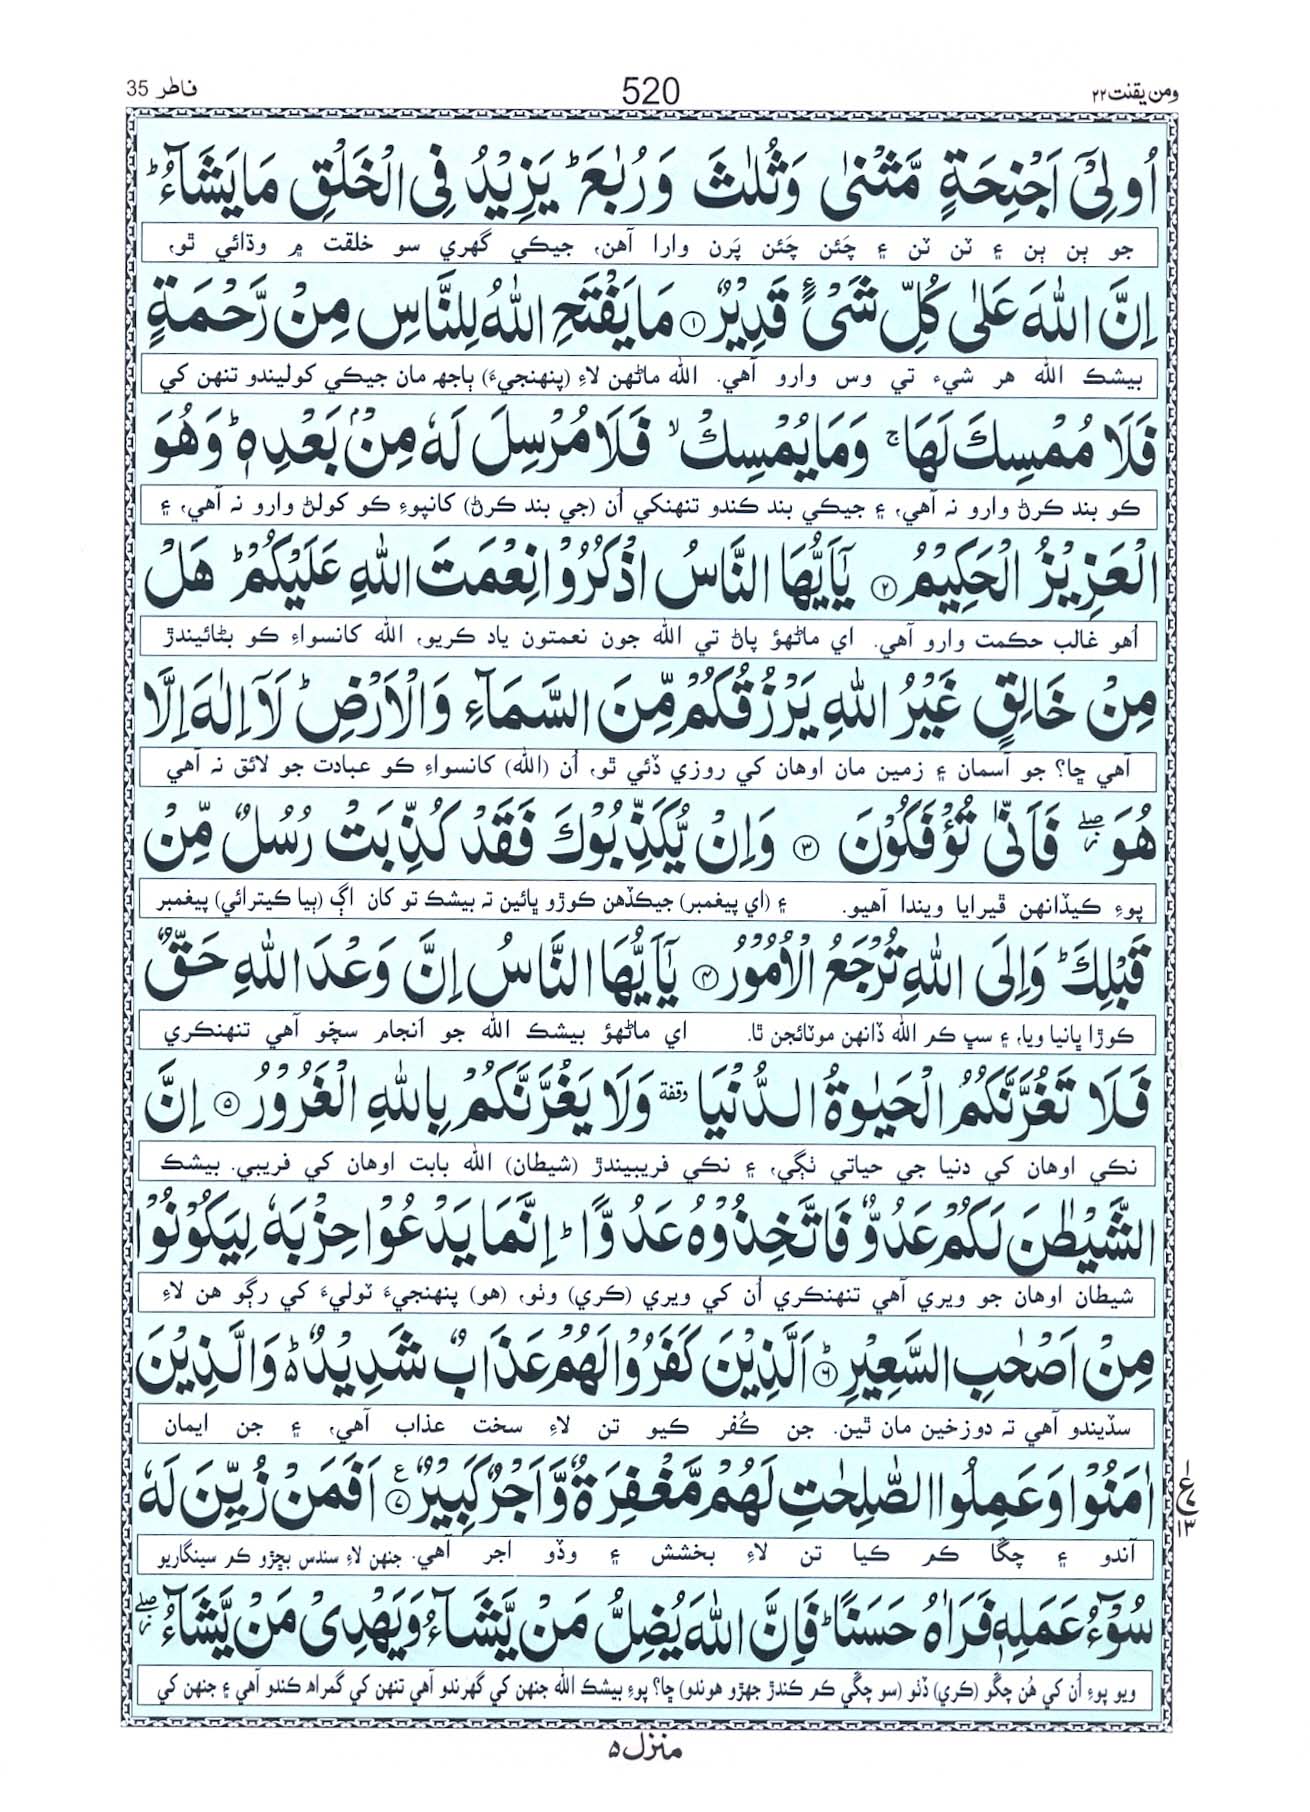 ومن يقنت ٢٢ 520 فاطر 35
اُولِىْۤ اَجْنِحَةٍ مَّثْنٰى وَثُلٰثَ وَرُبٰعَ ؕ يَزِيْدُ فِى الْخَلْقِ مَا يَشَآءُ ؕ
جو ٻن ٻن ۽ ٽن ٽن ۽ چَئن چَئن پَرن وارا آهن، جيڪي گھري سو خلقت ۾ وڌائي ٿو،
اِنَّ اللّٰهَ عَلٰى كُلِّ شَىْءٍ قَدِيْرٌ ﴿١﴾ مَا يَفْتَحِ اللّٰهُ لِلنَّاسِ مِنْ رَّحْمَةٍ
بيشڪ الله هر شيء تي وس وارو آهي. الله ماڻهن لاءِ (پنهنجيءَ) ٻاجهہ مان جيڪي کوليندو تنهن کي
فَلَا مُمْسِكَ لَهَا ۚ وَمَا يُمْسِكْ ۙ فَلَا مُرْسِلَ لَهٗ مِنْۢ بَعْدِهٖ ؕ وَهُوَ
ڪو بند ڪرڻ وارو نہ آهي، ۽ جيڪي بند ڪندو تنهنکي اُن (جي بند ڪرڻ) کانپوءِ ڪو کولڻ وارو نہ آهي، ۽
الْعَزِيْزُ الْحَكِيْمُ ﴿٢﴾ يٰۤاَيُّهَا النَّاسُ اذْكُرُوْا نِعْمَتَ اللّٰهِ عَلَيْكُمْ ؕ هَلْ
اُهو غالب حڪمت وارو آهي. اي ماڻهؤ پاڻ تي الله جون نعمتون ياد ڪريو، الله کانسواءِ ڪو بڻائيندڙ
مِنْ خَالِقٍ غَيْرُ اللّٰهِ يَرْزُقُكُمْ مِّنَ السَّمَآءِ وَالْاَرْضِ ؕ لَاۤ اِلٰهَ اِلَّا
آهي ڇا؟ جو آسمان ۽ زمين مان اوهان کي روزي ڏئي ٿو، اُن (الله) کانسواءِ ڪو عبادت جو لائق نہ آهي
هُوَ ۖ فَاَنّٰى تُؤْفَكُوْنَ ﴿٣﴾ وَاِنْ يُّكَذِّبُوْكَ فَقَدْ كُذِّبَتْ رُسُلٌ مِّنْ
پوءِ ڪيڏانهن ڦيرايا ويندا آهيو. ۽ (اي پيغمبر) جيڪڏهن ڪوڙو ڀائين تہ بيشڪ تو کان اڳ (ٻيا ڪيترائي) پيغمبر
قَبْلِكَ ؕ وَاِلَى اللّٰهِ تُرْجَعُ الْاُمُوْرُ ﴿٤﴾ يٰۤاَيُّهَا النَّاسُ اِنَّ وَعْدَ اللّٰهِ حَقٌّ
ڪوڙا ڀانيا ويا، ۽ سڀ ڪم الله ڏانهن موٽائجن ٿا. اي ماڻهؤ بيشڪ الله جو اَنجام سچّو آهي تنهنڪري
فَلَا تَغُرَّنَّكُمُ الْحَيٰوةُ الدُّنْيَا وقفة وَلَا يَغُرَّنَّكُمْ بِاللّٰهِ الْغَرُوْرُ ﴿٥﴾ اِنَّ
نڪي اوهان کي دنيا جي حياتي ٺڳي، ۽ نڪي فريبيندڙ (شيطان) الله بابت اوهان کي فريبي. بيشڪ
الشَّيْطٰنَ لَكُمْ عَدُوٌّ فَاتَّخِذُوْهُ عَدُوًّا ؕ اِنَّمَا يَدْعُوْا حِزْبَهٗ لِيَكُوْنُوْا
شيطان اوهان جو ويري آهي تنهنڪري اُن کي ويري (ڪري) وٺو، (هو) پنهنجيءَ ٽوليءَ کي رڳو هن لاءِ
مِنْ اَصْحٰبِ السَّعِيْرِ ﴿٦﴾ ؕ اَلَّذِيْنَ كَفَرُوْا لَهُمْ عَذَابٌ شَدِيْدٌ ۬ؕ وَالَّذِيْنَ
سڏيندو آهي تہ دوزخين مان ٿين. جن ڪُفر ڪيو تن لاءِ سخت عذاب آهي، ۽ جن ايمان
اٰمَنُوْا وَعَمِلُوا الصّٰلِحٰتِ لَهُمْ مَّغْفِرَةٌ وَّاَجْرٌ كَبِيْرٌ ﴿٧﴾ ع اَفَمَنْ زُيِّنَ لَهٗ
آندو ۽ چڱا ڪم ڪيا تن لاءِ بخشش ۽ وڏو اجر آهي. جنهن لاءِ سندس بڇڙو ڪم سينگاريو
سُوْٓءُ عَمَلِهٖ فَرَاٰهُ حَسَنًا ؕ فَاِنَّ اللّٰهَ يُضِلُّ مَنْ يَّشَآءُ وَيَهْدِىْ مَنْ يَّشَآءُ ۖ
ويو پوءِ اُن کي هُن چڱو (ڪري) ڏٺو (سو چڱي ڪم ڪندڙ جهڙو هوندو) ڇا؟ پوءِ بيشڪ الله جنهن کي گھرندو آهي تنهن کي گمراھ ڪندو آهي ۽ جنهن کي
ع ١٣
منزل ٥